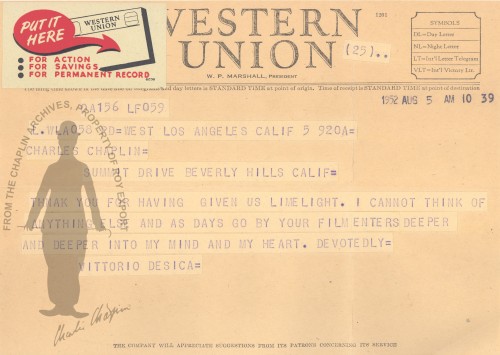 PUT IT HERE
WESTERN UNION
FOR ACTION
FOR SAVINGS
FOR PERMANENT RECORD
WESTERN UNION
1201
(25)..
W. P. MARSHALL, PRESIDENT
SYMBOLS
DL=Day Letter
NL=Night Letter
LT=Int'l Letter Telegram
VLT=Int'l Victory Ltr.
day letters is STANDARD TIME at point of origin. Time of receipt is STANDARD TIME at point of destination
A156 LF059
1952 AUG 5 AM 10 39
L.WLA058 PD=WEST LOS ANGELES CALIF 5 920A=
CHARLES CHAPLIN=
SUMMIT DRIVE BEVERLY HILLS CALIF=
THANK YOU FOR HAVING GIVEN US LIMELIGHT. I CANNOT THINK OF
ANYTHING ELSE AND AS DAYS GO BY YOUR FILM ENTERS DEEPER
AND DEEPER INTO MY MIND AND MY HEART. DEVOTEDLY=
VITTORIO DESICA=
FROM THE CHAPLIN ARCHIVES, PROPERTY OF ROY EXPORT
Charlie Chaplin
THE COMPANY WILL APPRECIATE SUGGESTIONS FROM ITS PATRONS CONCERNING ITS SERVICE